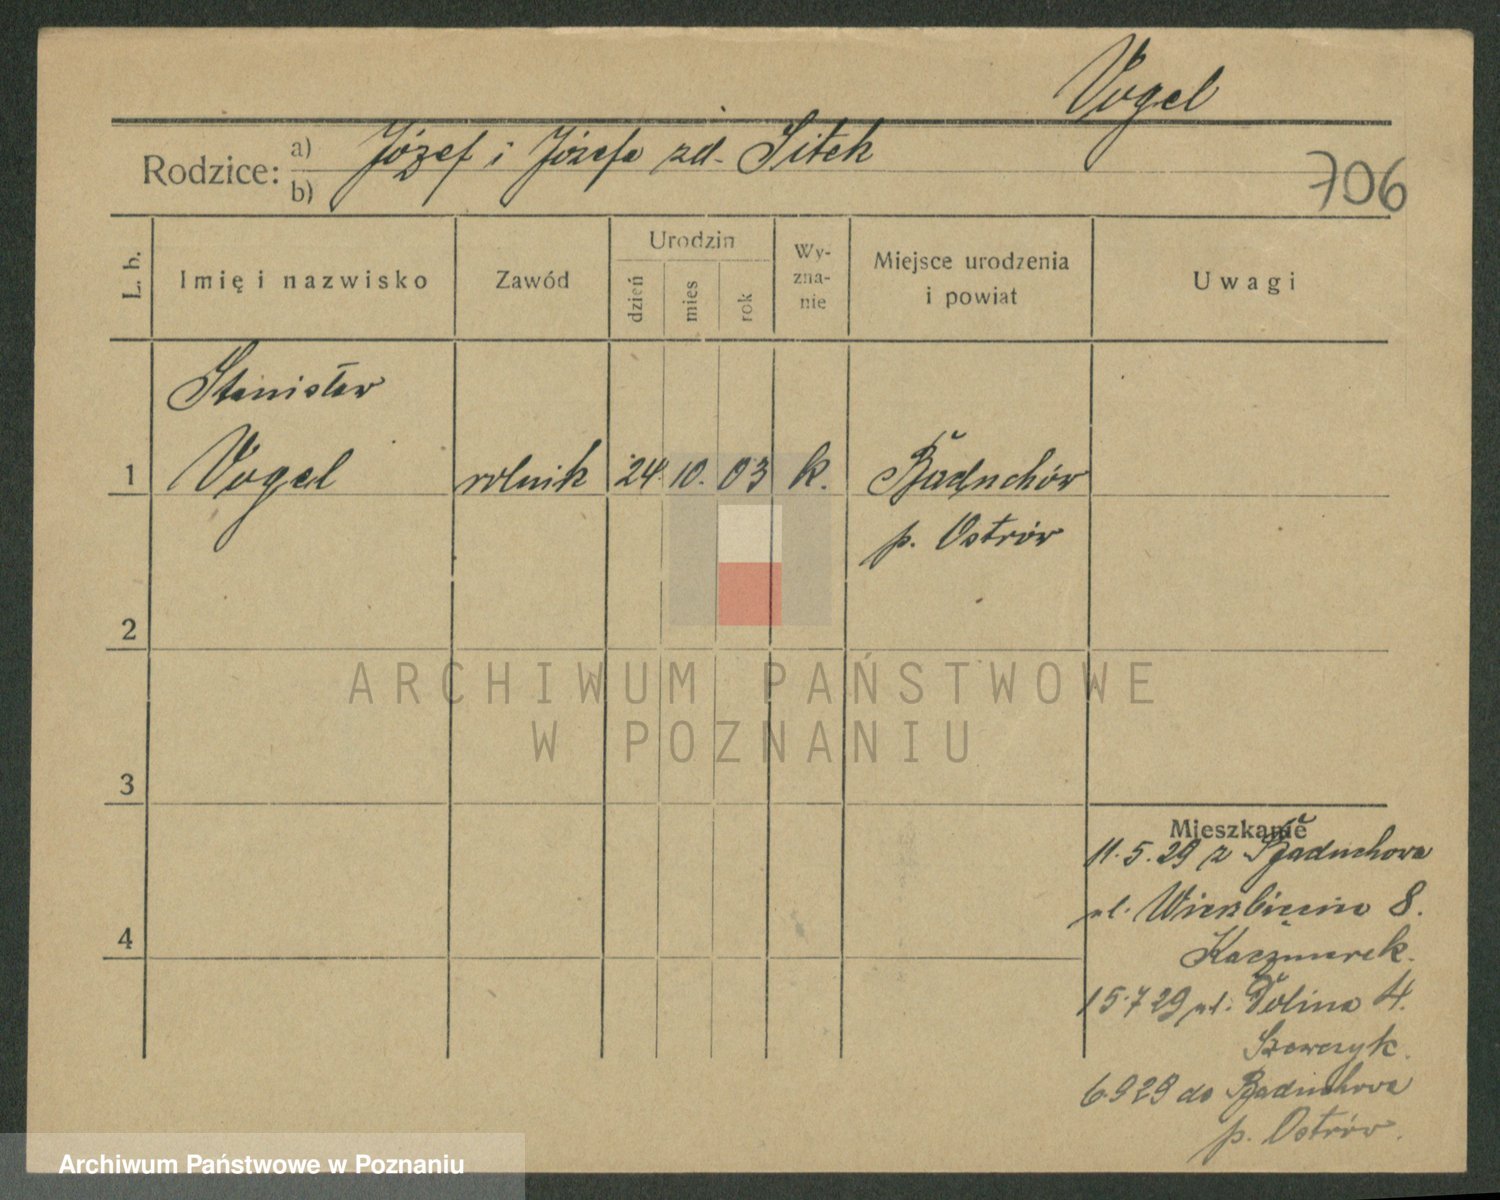 Vogel
Rodzice: a) Józef i Józefa zd. Sitek
b)
706
L. b.
Imię i nazwisko
Zawód
Urodzin
dzień
mies
rok
Wy-
zna-
nie
Miejsce urodzenia
i powiat
Uwagi
Stanisław
1 Vogel rolnik 24. 10. 03 k. Baduchów
p. Ostrów
2
ARCHIWUM PAŃSTWOWE
W POZNANIU
3
Mieszkanie
11.5.29 z Baduchowa
ul. Wierzbięcice 8.
4
Kaczmarek.
15.7 29 ul. Dolina 4.
Szewczyk.
6.9 29 do Baduchowa
p. Ostrów.
Archiwum Państwowe w Poznaniu